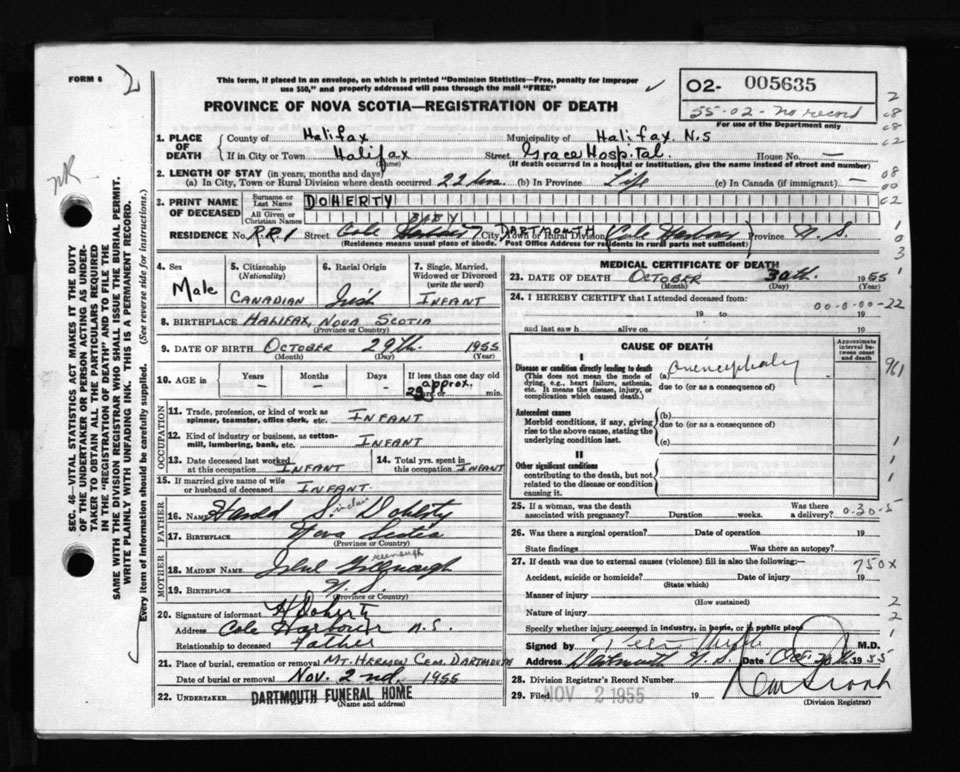 FORM 6
2
This form, if placed in an envelope, on which is printed "Dominion Statistics—Free, penalty for improper
use $50," and properly addressed will pass through the mail "FREE"
PROVINCE OF NOVA SCOTIA—REGISTRATION OF DEATH
02- 005635
55-02-no record
For use of the Department only
NR
SEC. 46—VITAL STATISTICS ACT MAKES IT THE DUTY
OF THE UNDERTAKER OR PERSON ACTING AS UNDER-
TAKER TO OBTAIN ALL THE PARTICULARS REQUIRED
IN THE "REGISTRATION OF DEATH" AND TO FILE THE
SAME WITH THE DIVISION REGISTRAR WHO SHALL ISSUE THE BURIAL PERMIT.
WRITE PLAINLY WITH UNFADING INK. THIS IS A PERMANENT RECORD.
Every item of information should be carefully supplied. (See reverse side for instructions.)
1. PLACE OF DEATH
County of Halifax Municipality of Halifax, N.S
If in City or Town Halifax Street Grace Hospital House No. —
(Name) (If death occurred in a hospital or institution, give the name instead of street and number)
2. LENGTH OF STAY (in years, months and days)
(a) In City, Town or Rural Division where death occurred 22 hrs. (b) In Province Life (c) In Canada (if immigrant) —
3. PRINT NAME OF DECEASED
Surname or Last Name DOHERTY
All Given or Christian Names BABY
RESIDENCE No. R.R.1 Street Cole Harbour City, Town or Rural Division DARTMOUTH (Cole Harbour) Province N.S.
(Residence means usual place of abode. Post Office Address for residents in rural parts not sufficient)
4. Sex Male
5. Citizenship (Nationality) CANADIAN
6. Racial Origin Irish
7. Single, Married, Widowed or Divorced (write the word) INFANT
8. BIRTHPLACE HALIFAX, NOVA SCOTIA
(Province or Country)
9. DATE OF BIRTH OCTOBER 29th. 1955
(Month) (Day) (Year)
10. AGE in Years — Months — Days — If less than one day old approx. hrs. or min.
OCCUPATION
11. Trade, profession, or kind of work as spinner, teamster, office clerk, etc. INFANT
12. Kind of industry or business, as cotton-mill, lumbering, bank, etc. INFANT
13. Date deceased last worked at this occupation INFANT
14. Total yrs. spent in this occupation INFANT
15. If married give name of wife or husband of deceased INFANT.
FATHER
16. NAME Harold S. Sinclair Doherty
17. BIRTHPLACE Nova Scotia
(Province or Country)
MOTHER
18. MAIDEN NAME
19. BIRTHPLACE N.S.
(Province or Country)
20. Signature of informant H Doherty
Address Cole Harbour N.S.
Relationship to deceased Father
21. Place of burial, cremation or removal MT. HERMON CEM. DARTMOUTH
Date of burial or removal Nov. 2nd. 1955
22. UNDERTAKER DARTMOUTH FUNERAL HOME
(Name and address)
MEDICAL CERTIFICATE OF DEATH
23. DATE OF DEATH OCTOBER 30th. 1955
(Month) (Day) (Year)
24. I HEREBY CERTIFY that I attended deceased from:
00-0-00-22
19 to 19
and last saw h alive on 19
CAUSE OF DEATH
Approximate interval between onset and death
I
Disease or condition directly leading to death
(This does not mean the mode of dying, e.g., heart failure, asthenia, etc. It means the disease, injury, or complication which caused death.)
(a) Anencephaly
due to (or as a consequence of)
Antecedent causes
Morbid conditions, if any, giving rise to the above cause, stating the underlying condition last.
(b)
due to (or as a consequence of)
(c)
II
Other significant conditions
contributing to the death, but not related to the disease or condition causing it.
25. If a woman, was the death associated with pregnancy? Duration weeks. Was there a delivery? 0-30-5
26. Was there a surgical operation? Date of operation
State findings Was there an autopsy?
27. If death was due to external causes (violence) fill in also the following:— 750X
Accident, suicide or homicide? Date of injury 19
(State which)
Manner of injury
(How sustained)
Nature of injury
Specify whether injury occurred in industry, in home, or in public place
Signed by M.D.
Address Dartmouth N.S. Date Oct 30th 1955
28. Division Registrar's Record Number
29. Filed NOV 2 1955 19
(Division Registrar)